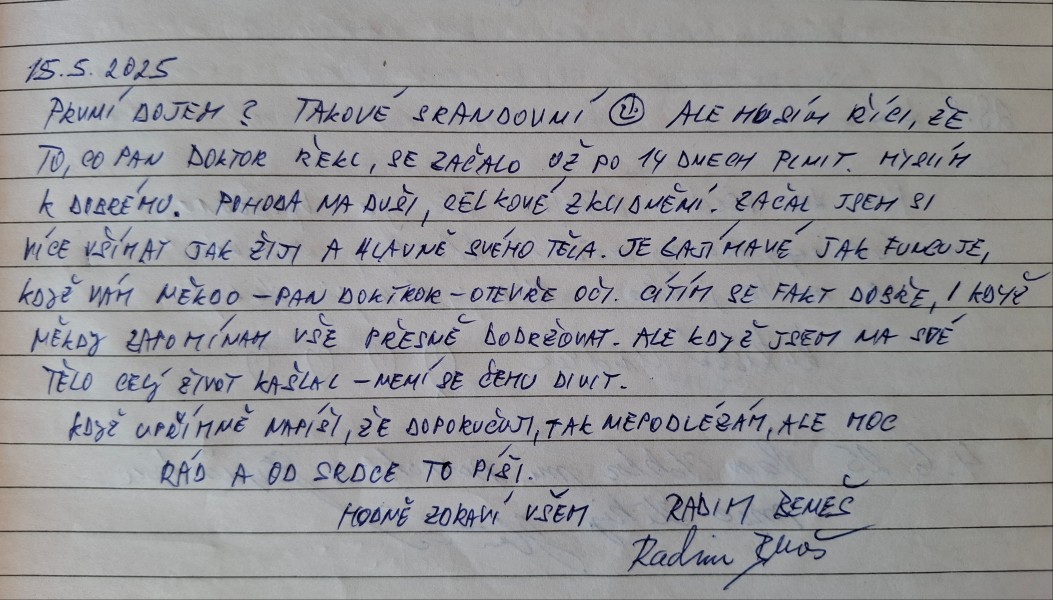 15.5.2025
PRVNÍ DOJEM? TAKOVÉ SRANDOVNÍ ☺ ALE MUSÍM ŘÍCI, ŽE
TO, CO PAN DOKTOR ŘEKL, SE ZAČALO UŽ PO 14 DNECH PLNIT. MYSLÍM
K DOBRÉMU. POHODA NA DUŠI, CELKOVÉ ZKLIDNĚNÍ. ZAČAL JSEM SI
VÍCE VŠÍMAT JAK ŽIJI A HLAVNĚ SVÉHO TĚLA. JE ZAJÍMAVÉ JAK FUNGUJE,
KDYŽ VÁM NĚKDO – PAN DOKTROR – OTEVŘE OČI. CÍTÍM SE FAKT DOBŘE, I KDYŽ
NĚKDY ZAPOMÍNÁM VŠE PŘESNĚ DODRŽOVAT. ALE KDYŽ JSEM NA SVÉ
TĚLO CELÝ ŽIVOT KAŠLAL – NENÍ SE ČEMU DIVIT.
KDYŽ UPŘÍMNĚ NAPÍŠI, ŽE DOPORUČUJI, TAK NEPODLÉZÁM, ALE MOC
RÁD A OD SRDCE TO PÍŠI.
HODNĚ ZDRAVÍ VŠEM RADIM BENEŠ
Radim Beneš